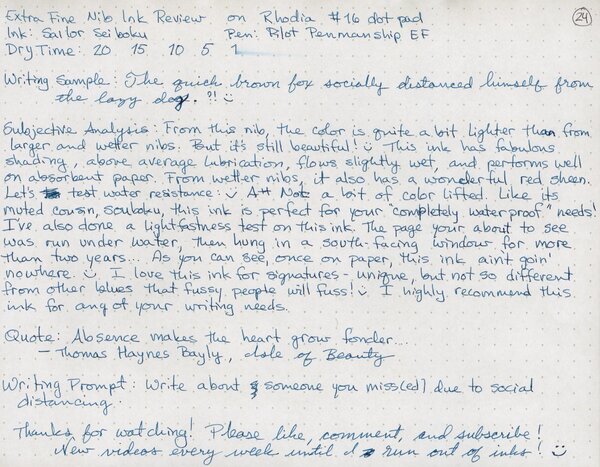 Extra Fine Nib Ink Review on Rhodia #16 dot pad
24
Ink: Sailor Seiboku Pen: Pilot Penmanship EF
Dry Time: 20 15 10 5 1
Writing Sample: The quick brown fox socially distanced himself from
the lazy dog. !! :)
Subjective Analysis: From this nib, the color is quite a bit lighter than from
larger and wetter nibs. But it's still beautiful! :) This ink has fabulous
shading, above average lubrication, flows slightly wet, and performs well
on absorbent paper. From wetter nibs, it also has a wonderful red sheen.
Let's test water resistance: :) Not a bit of color lifted. Like its
muted cousin, souboku, this ink is perfect for your "completely waterproof" needs!
I've also done a lightfastness test on this ink. The page your about to see
was run under water, then hung in a south-facing window for more
than two years... As you can see, once on paper, this ink aint goin'
nowhere. :) I love this ink for signatures - unique, but not so different
from other blues that fussy people will fuss! :) I highly recommend this
ink for any of your writing needs.
Quote: Absence makes the heart grow fonder...
— Thomas Haynes Bayly, Isle of Beauty
Writing Prompt: Write about someone you miss(ed) due to social
distancing.
Thanks for watching! Please like, comment, and subscribe!
New videos every week until I run out of inks! :)